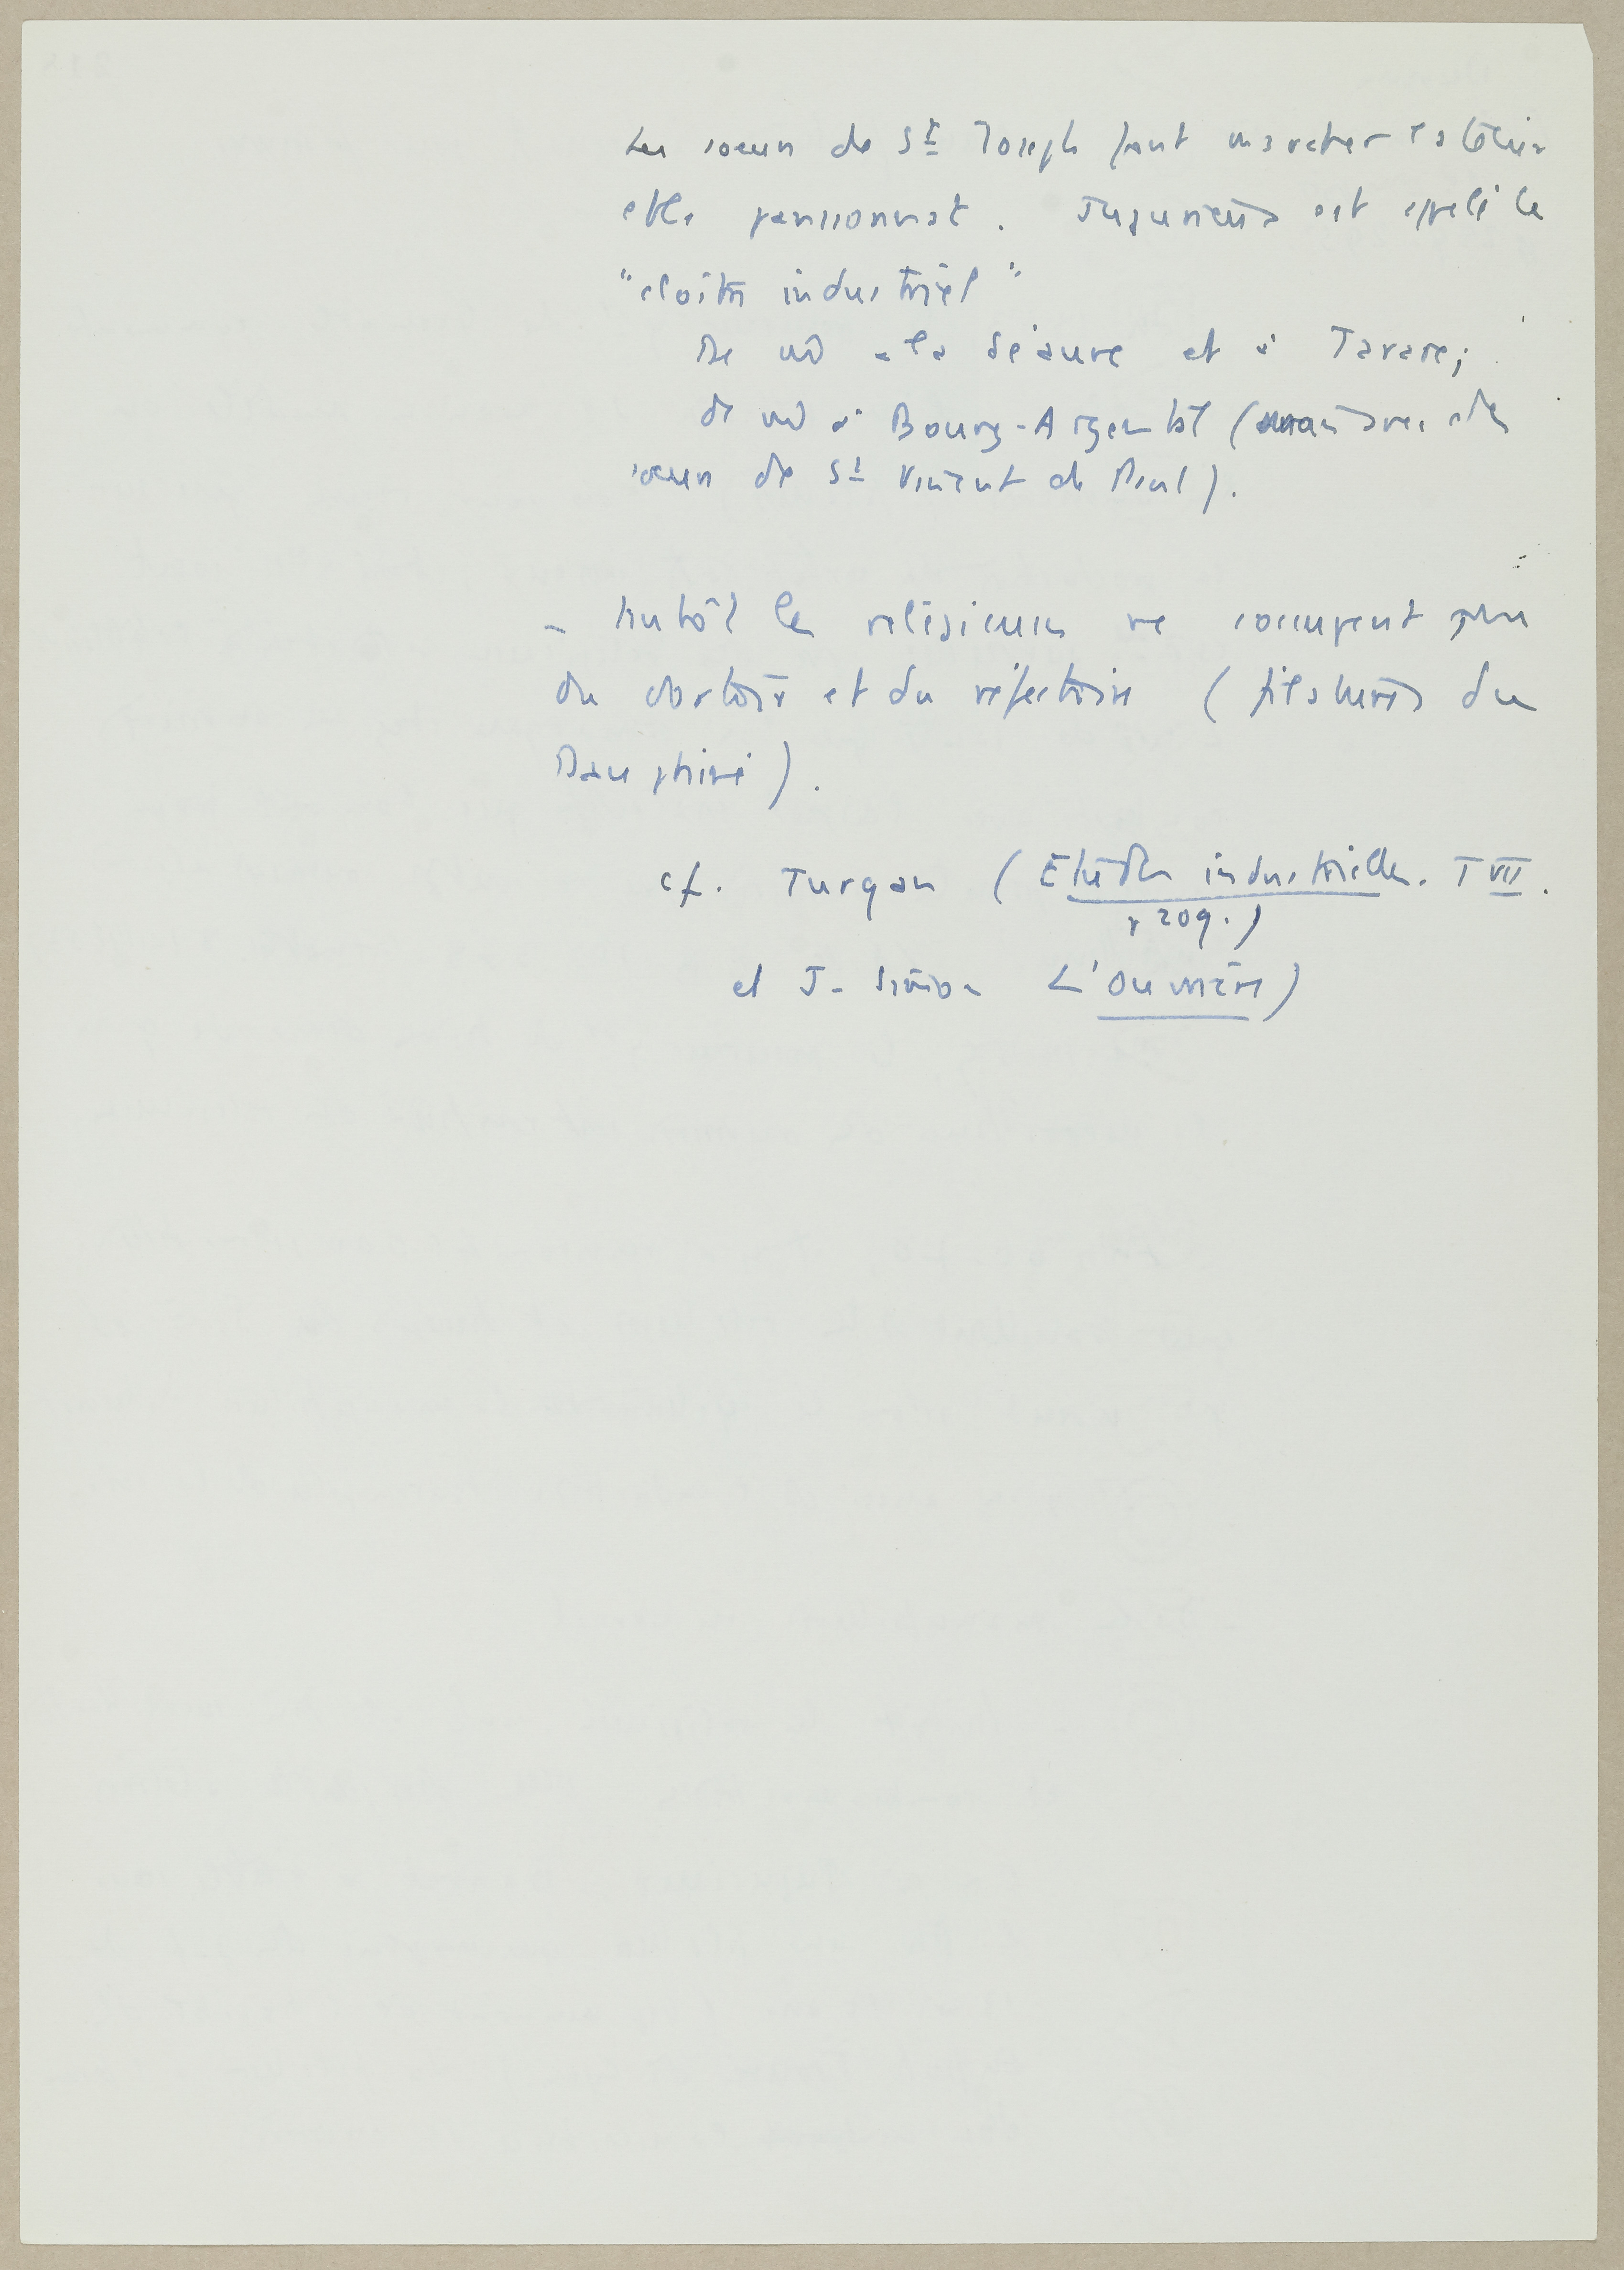 Les soeurs de St Joseph font marcher l'atelier
et le pensionnat. Jujurieux est appelé le
"cloître industriel"
De m̂ à la Séauve et à Tarare;
de m̂ à Bourg-Argental (mais avec des
soeurs de St Vincent de Paul).
- tantôt les religieuses ne s'occupent que
du dortoir et du réfectoire (filatures du
Dauphiné).
cf. Turgan (Etudes industrielles. T VII.
p 209.)
et J. Simon L'Ouvrière)